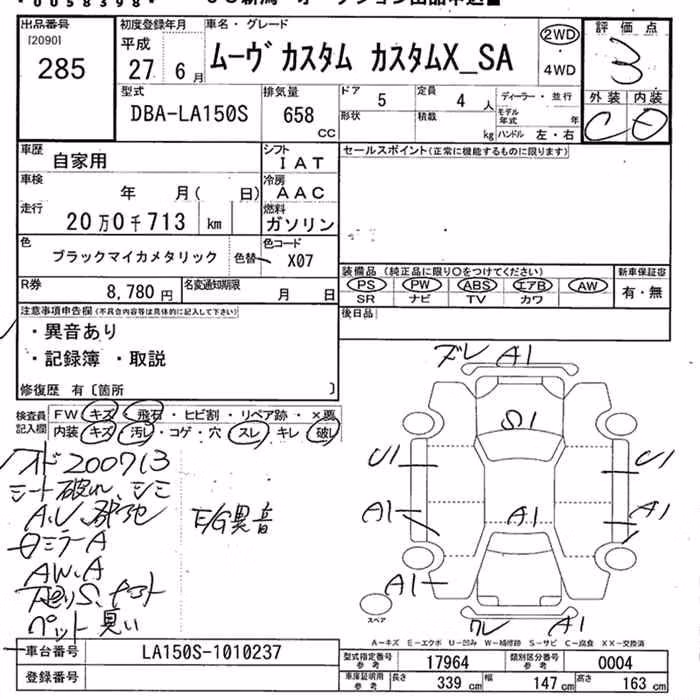 出品番号
[2090]
285
初度登録年月
平成
27 6月
車名・グレード
ムーヴ カスタム カスタムX_SA
2WD
4WD
評価点
3
外装 内装
C D
型式
DBA-LA150S
排気量
658 CC
ドア
5
定員
4 人
形状
積載
kg
ディーラー・並行
モデル年式 年
ハンドル 左・右
車歴
自家用
シフト
IAT
車検
年 月( 日)
冷房
AAC
走行
20万0千713 km
燃料
ガソリン
色
ブラックマイカメタリック
色替
色コード
X07
R券
8,780円
名変通知期限
月 日
セールスポイント(正常に機能するものに限ります)
装備品 (純正品に限り○をつけてください)
PS PW ABS エアB AW
SR ナビ TV カワ
新車保証書
有・無
後日品
注意事項申告欄(不具合内容等は具体的に記入して下さい)
・異音あり
・記録簿 ・取説
修復歴 有〔箇所 〕
検査員記入欄
FW キズ・飛石・ヒビ割・リペア跡・×要
内装 キズ 汚レ・コゲ・穴 スレ キレ 破レ
200713
シート破れ、シミ
E/G異音
ミラーA
AW.A
ペット臭い
ズレ A1
S1
U1
U1
A1
A1
A1
A1
ワレ A1
スペア
A-キズ E-エクボ U-凹み W-補修跡 S-サビ C-腐食 XX-交換済
車台番号
LA150S-1010237
登録番号
型式指定番号 参考
17964
類別区分番号 参考
0004
車庫証明用 参考
長さ 339 cm
幅 147 cm
高さ 163 cm